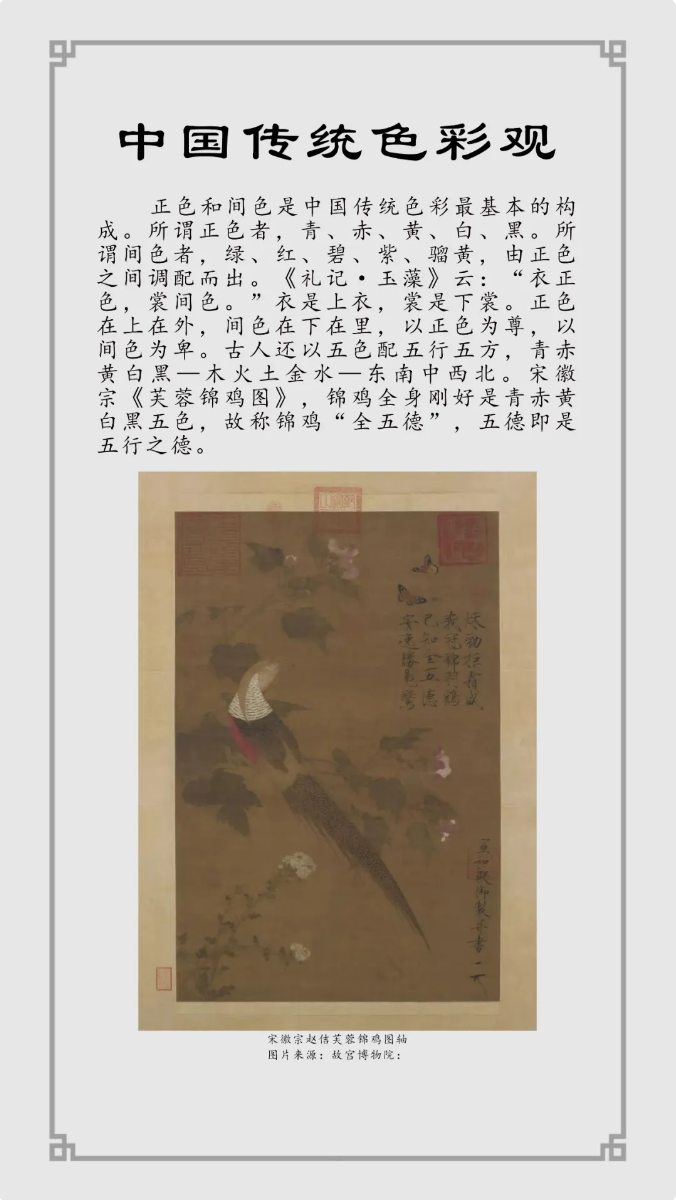 中国传统色彩观
正色和间色是中国传统色彩最基本的构
成。所谓正色者，青、赤、黄、白、黑。所
谓间色者，绿、红、碧、紫、骝黄，由正色
之间调配而出。《礼记·玉藻》云：“衣正
色，裳间色。”衣是上衣，裳是下裳。正色
在上在外，间色在下在里，以正色为尊，以
间色为卑。古人还以五色配五行五方，青赤
黄白黑—木火土金水—东南中西北。宋徽
宗《芙蓉锦鸡图》，锦鸡全身刚好是青赤黄
白黑五色，故称锦鸡“全五德”，五德即是
五行之德。
秋劲拒霜盛
峨冠锦羽鸡
已知全五德
安逸胜凫鹥
宋徽宗赵佶芙蓉锦鸡图轴
图片来源：故宫博物院：